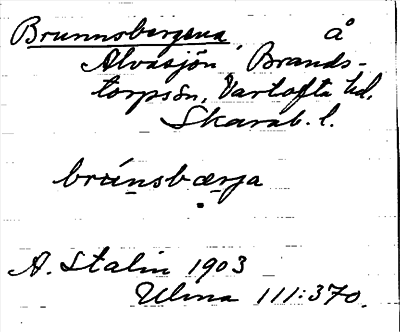 Brunnsbergena, å
Alvasjön, Brands-
torpsön, Vartofta hd,
Skarab. l.
brúnsbærja
A. Stalin 1903
Ulma 111:370.